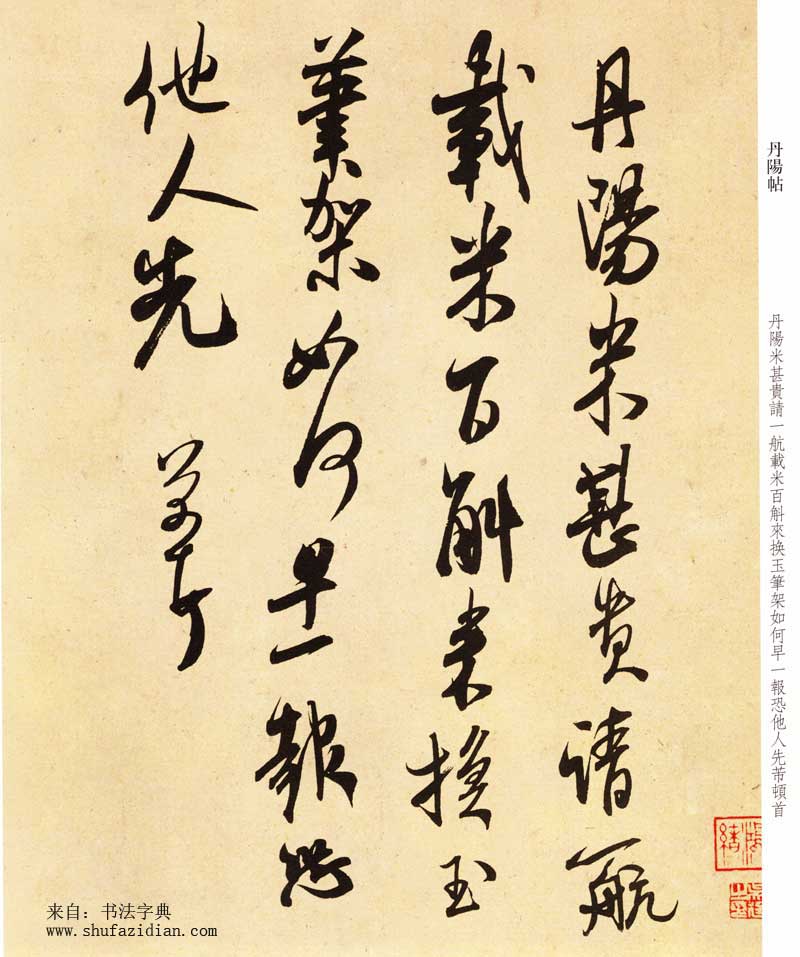 丹陽帖
丹陽米甚貴請一航載米百斛來換玉筆架如何早一報恐他人先芾頓首
丹陽米甚貴請一航
載米百斛来換玉
筆架如何早一報恐
他人先 芾頓首
来自：书法字典
www.shufazidian.com